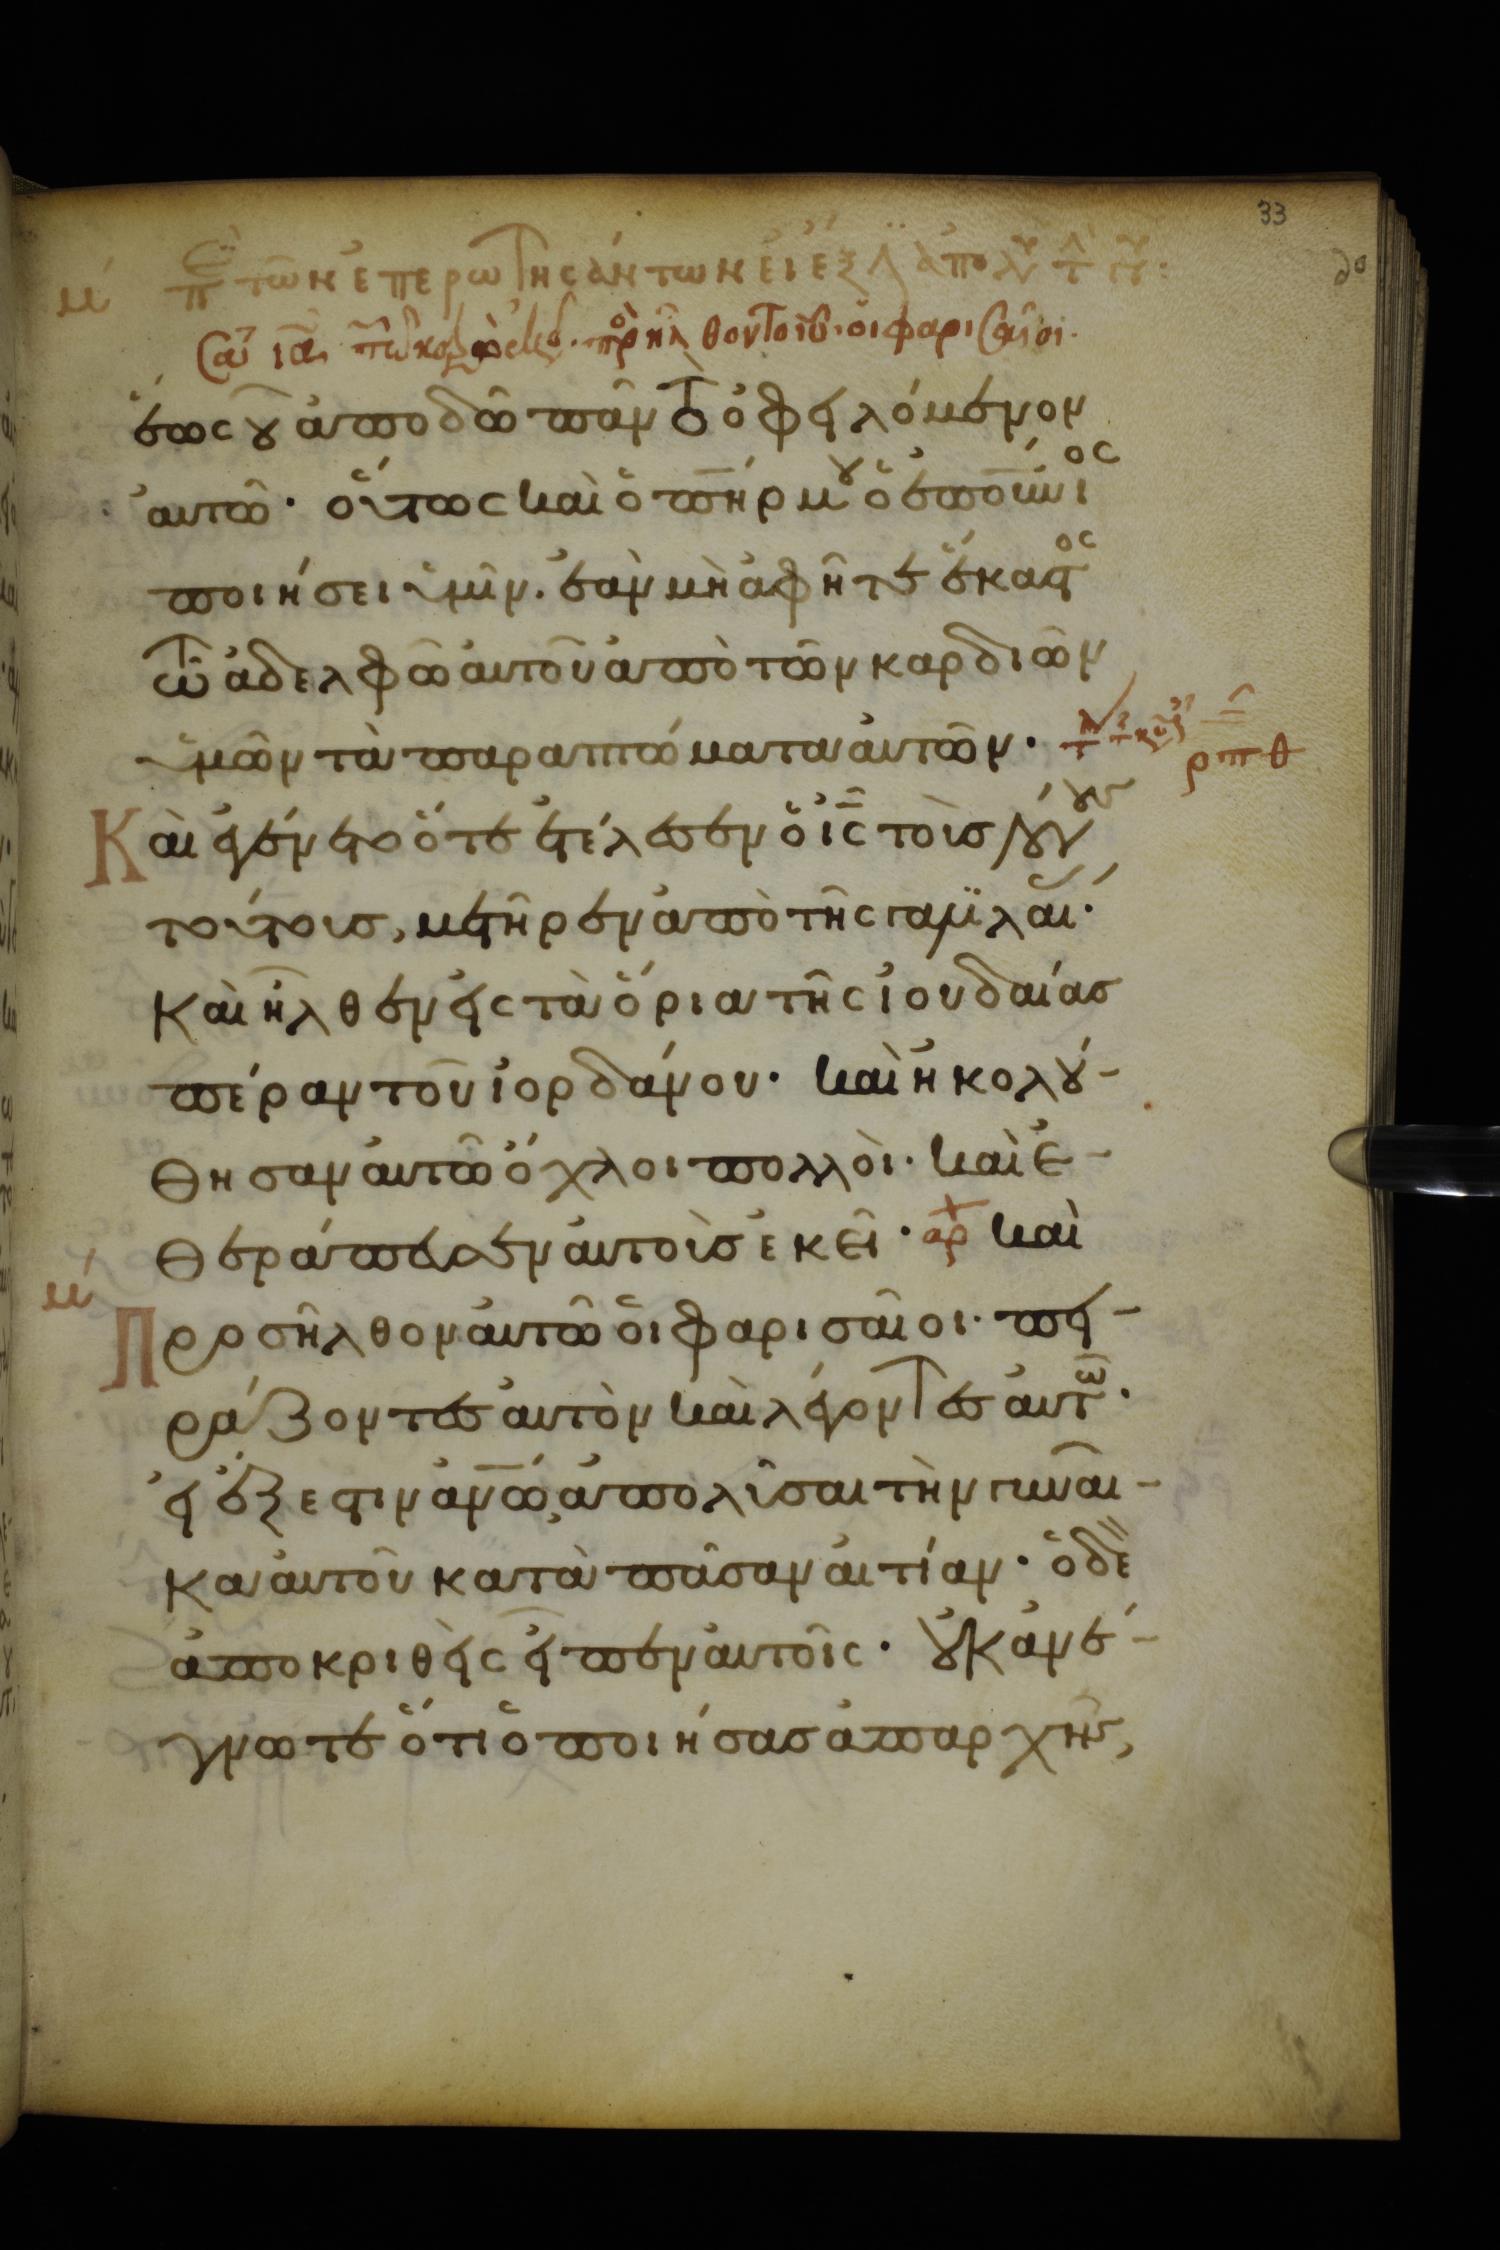 33
μ̅ π̅ε τῶν ἐπερωτησάντων εἰ ἔξ ἀπολ τ γυ:
τῶ κῶ προσῆλθον τῶ ιυ οἱ φαρισαῖοι.
ἕως οὗ ἀποδῶ πᾶν τὸ ὀφειλόμενον
αυτῶ· οὕτως καὶ ὁ πη̅ρ μου ὁ ἐπουνιος
ποιήσει ὑμῖν. ἐὰν μὴ ἀφῆτε ἕκαστος
τῶ ἀδελφῶ αὐτοῦ ἀπὸ τῶν καρδιῶν
ὑμῶν τὰ παραπτώματα αὐτῶν·
ρπθ
Καὶ ἐγένετο ὅτε ἐτέλεσεν ὁ ι̅ς τοὺς λόγους
τούτους, μετῆρεν ἀπὸ τῆς γαλιλαί·
Καὶ ἦλθεν εἰς τὰ ὅρια τῆς ἰουδαίας
πέραν τοῦ ἰορδάνου· καὶ ἠκολού-
θησαν αυτῶ ὄχλοι πολλοὶ· καὶ ἐ-
θεράπευσεν αὐτοὺς ἐκεῖ· αρ καὶ
μ̅
Προσῆλθον αὐτῶ οἱ φαρισαῖοι· πει-
ράζοντες αὐτὸν καὶ λέγοντες αὐτῶ·
εἰ ἔξεστιν ἀν̅ω̅, ἀπολῦσαι τὴν γυναῖ-
κα αὐτοῦ κατὰ πᾶσαν αἰτίαν· ὁ δὲ
ἀποκριθεὶς εἶπεν αὐτοῖς· οὐκ ἀνέ-
γνωτε ὅτι ὁ ποιήσας ἀπαρχῆς,